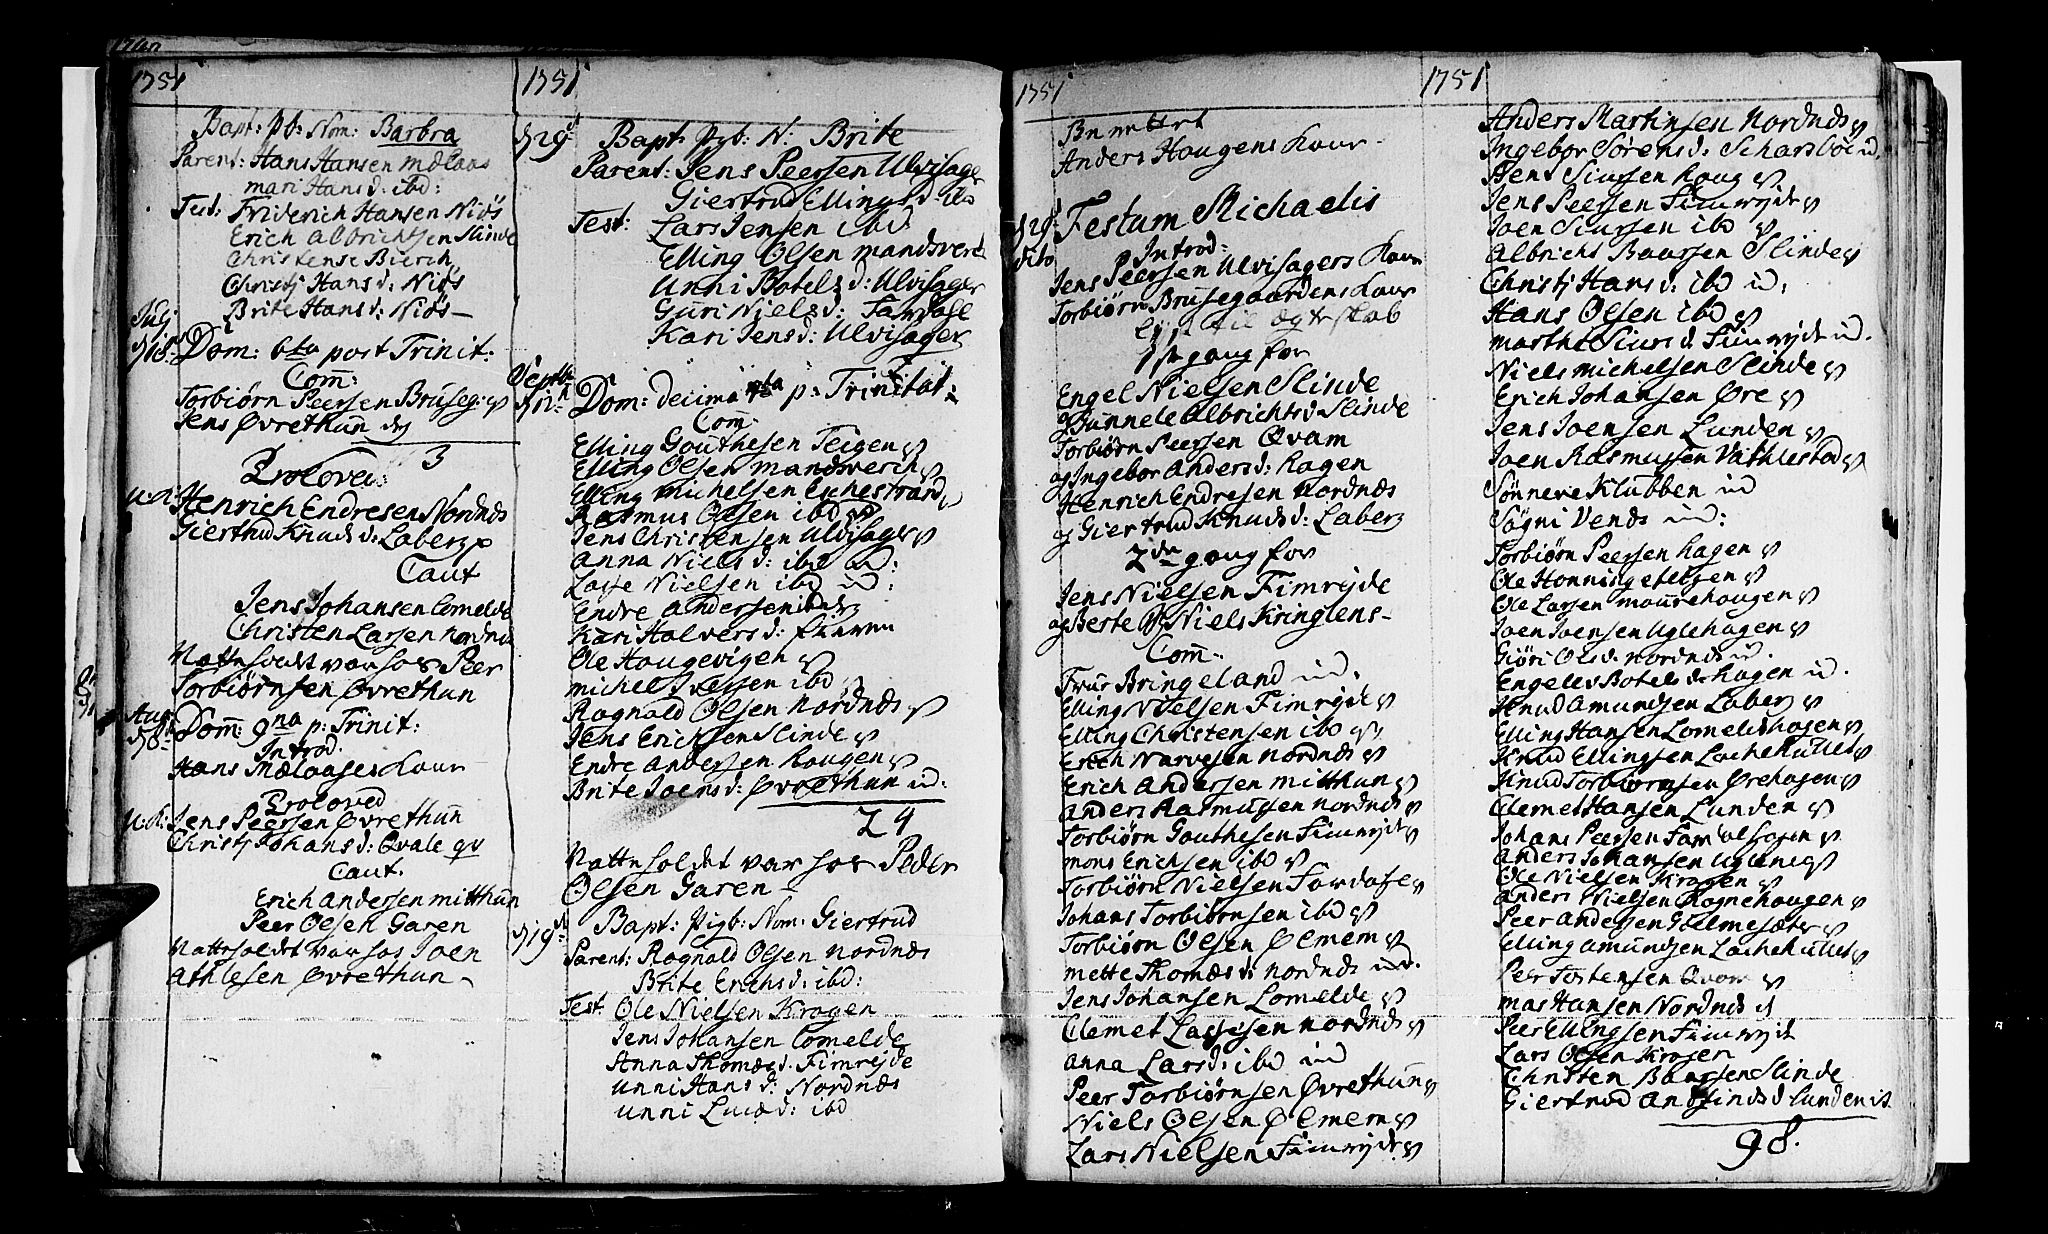 1751
Bapt: pb: Nom: Barbra
Parent: Hans Hansen Mælaas
mari Hans d: ibd:
Test: Friderich Hansen Niøs
Erich Albrichtsen Slinde
Christense Bierch
Christj Hans d: Niøs
Brite Hans d: Niøs
Julj
d 18: Dom: 6ta post Trinit:
Com:
Torbiørn Peersen Bruseg:
Jens Øvrethun
3
Proloved:
Henrich Endresen Nordnæs
Giertrud Knuds d: Laberg
Caut
Jens Johansen Lomelde
Christen Larsen Nordnæs
Natteholdet var hos Peer
Torbiørnsen Øvrethun
Aug:
d 8: Dom: 9na p: Trinit:
Introd.
Hans Mælaases Kone
Proloved
Jens Peersen Øvrethun
Christj Johans d: Qvale
Caut.
Erich Andersen Mitthun
Peer Olsen Garen
Natteholdet var hos Joen
Athlesen Øvrethun
1751
d 29: Bapt: Pigb: N: Brite
Parent: Jens Peersen Ulvisager
Giertrud Ellings d: ibd
Test: Lars Jensen ibd:
Elling Olsen mandsverk
Unni Botels d: Ulvisager
Guri Niels d: Fardahl
Kari Jens d: Ulvisager
Septb:
d 12: Dom: decima p: Trinitat:
Com:
Elling Gouthesen Teigen
Elling Olsen mandsverch
Elling Michelsen Eichestrand
Rasmus Olsen ibd
Jens Christensen Ulvisager
Anna Niels d: ibd ud:
Lasse Nielsen ibd ud:
Endre Andersen ibd
Kari Halvers d:
Ole Hougevigen
Michel Iversen ibd
Rognald Olsen Nordnæs
Jens Erichsen Slinde
Endre Andersen Hougen
Brite Joens d: Øvrethun ud:
24
Natteholdet var hos Peder
Olsen Garen
d 19: Bapt: Pigb: Nom: Giertrud
Parent: Rognald Olsen Nordnæs
Brite Erichs d: ibd:
Test: Ole Nielsen Krogen
Jens Johansen Lomelde
Anna Thomæs d. Fimreide
Unni Hans d: Nordnæs
Unni Lucæ d: ibd
1751
Anders Hougens Kone
d 29: Festum Michaelis
dito Introd:
Jens Peersen Ulvisagers Kone
Torbiørn Brusegaardens Kone
Lyst til Ægteskab
1st gang for
Engel Nielsen Slinde
og Gunnele Albrichts d: Slinde
Torbiørn Peersen Qvam
og Ingebor Anders d: Hagen
Henrich Endresen Nordnæs
og Giertrud Knuds d: Laberg
2den gang for
Jens Nielsen Fimreide
og Berte Niels Kringlens
Com:
Frue Bringeland ud:
Elling Nielsen Fimreide
Elling Christensen ibd
Erich Narvesen Nordnæs
Erich Andersen Mitthun
Anders Rasmusen Nordnæs
Torbiørn Gouthesen Fimreide
Mons Erichsen ibd
Torbiørn Nielsen Fardahl
Johans Torbiørnsen ibd
Torbiørn Olsen Ølmem
Mette Thomæs d: Nordnæs ud.
Jens Johansen Lomelde
Clemet Lassesen Nordnæs
Anna Lars d: ibd ud
Peer Torbiørnsen Øvrethun
Niels Olsen Ølmem
Lars Nielsen Fimreide
1751
Anders Martinsen Nordnæs
Ingebor Sørens d: ud.
Jens Siursen Houg
Jens Peersen Fimreide
Joen Siursen ibd
Albricht Baarsen Slinde
Christj Hans d: ibd ud:
Hans Olsen ibd
Marthe Siurs d Fimreide ud.
Niels Michelsen Slinde
Erich Johansen Øre
Jens Joensen Lunden
Joen Rasmussen Vathlestad
Sønneve Klubben ud
Søgni Vends ud:
Torbiørn Peersen Hagen
Ole Honningetelsen
Ole Larsen Mourehougen
Joen Joensen Uglehagen
Giøri Ols d. Nordnæs ud.
Engelev Botels d: Hagen ud.
Knud Amundsen Laberg
Elling Hansen Lomeldshagen
Knud Ellingsen Lachehullet
Knud Torbiørnsen Ørehagen
Clemet Hansen Lunden
Johans Peersen
Anders Johansen
Ole Nielsen Krogen
Anders Nielsen Rognehougen
Peer Andersen
Elling Amundsen Lachehullet
Peer Tostensen Qvam
Mas Hansen Nordnæs
Peer Ellingsen Fimreid
Lars Olsen Krogen
Christen Baarsen Slinde
Giertrud Anfinds d Lunden
98.